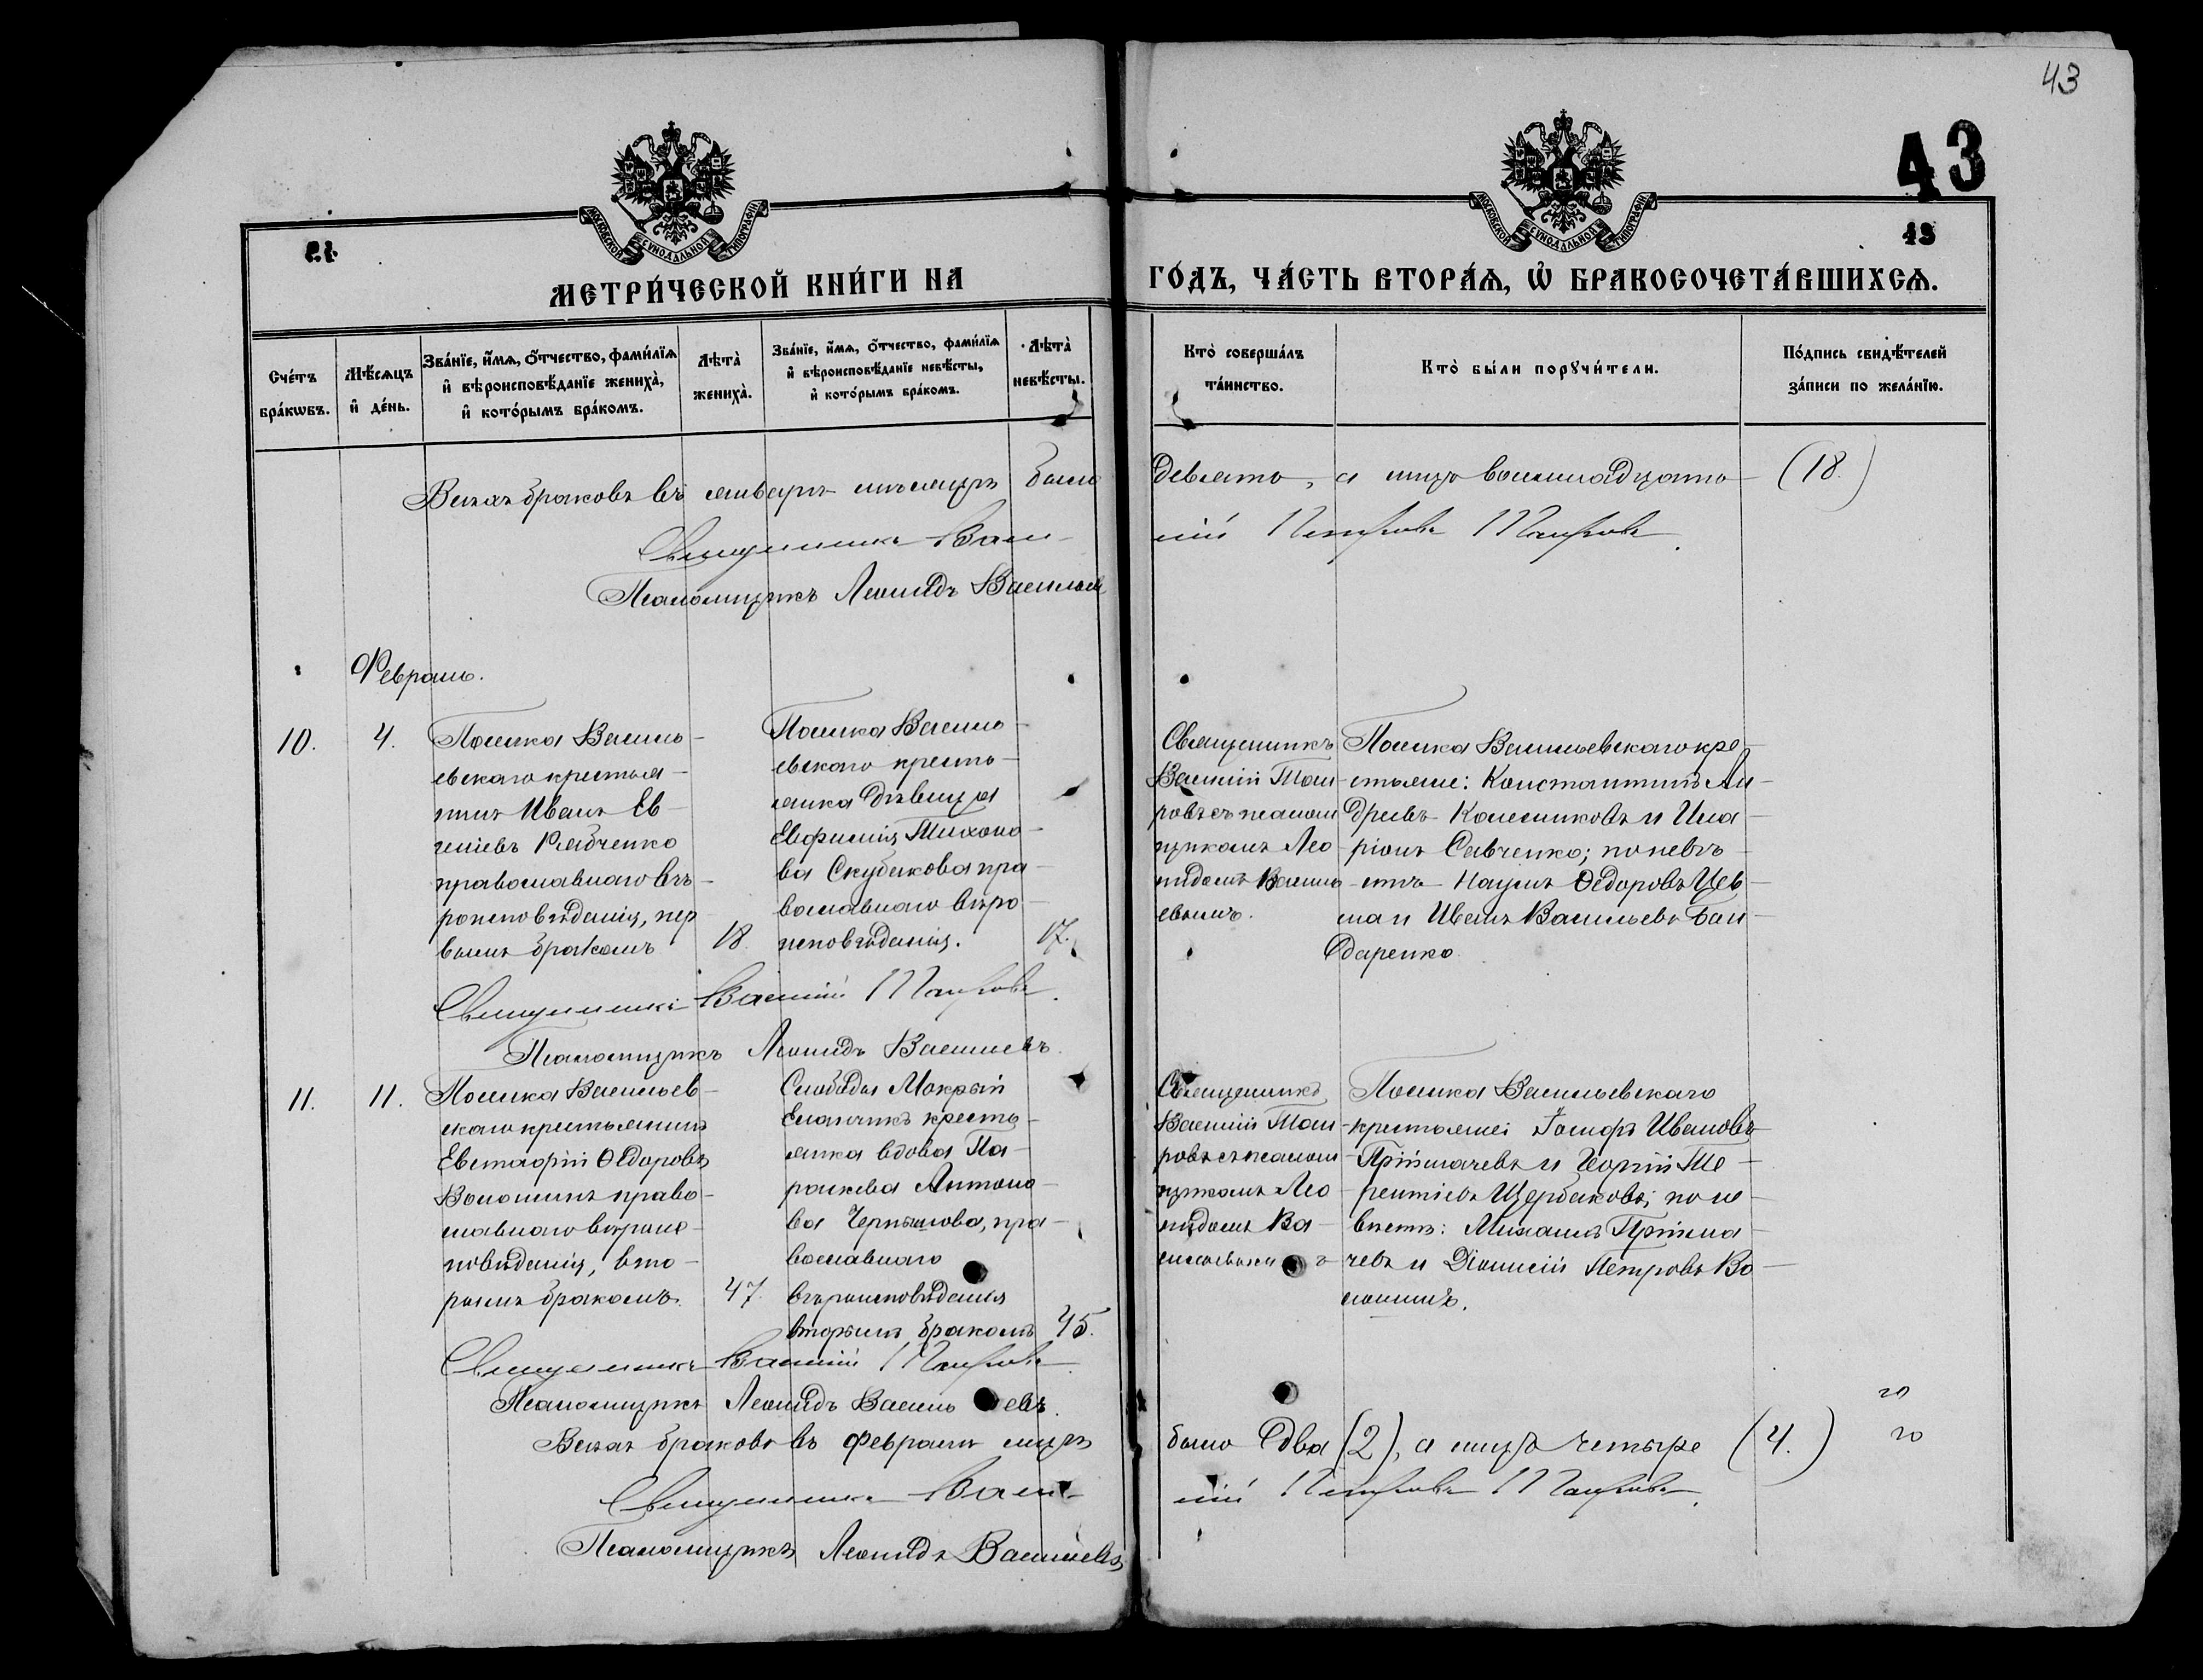 43
43
43
МОСКОВСКОЙ СѴНОДАЛЬНОЙ ТИПОГРАФІИ
МОСКОВСКОЙ СѴНОДАЛЬНОЙ ТИПОГРАФІИ
МЕТРИ́ЧЕСКОЙ КНИ́ГИ НА
ГО́ДЪ, ЧА́СТЬ ВТОРА́Ѧ, Ѽ БРАКОСОЧЕТА́ВШИХСѦ.
Сче́тъ бра́кѡвъ.
Мѣ́сяцъ и҆ де́нь.
Зва́нїе, и҆́мѧ, ѻ҆́тчество, фами́лїѧ
и҆ вѣроисповѣ́данїе жениха̀,
и҆ кото́рымъ бра́комъ.
Лѣта̀ жениха̀.
Зва́нїе, и҆́мѧ, ѻ҆́тчество, фами́лїѧ
и҆ вѣроисповѣ́данїе невѣ́сты,
и҆ кото́рымъ бра́комъ.
Лѣта̀ невѣ́сты.
Кто̀ соверша́лъ
та́инство.
Кто̀ бы́ли порꙋчи́тели.
По́дпись свидѣ́телей
за́писи по жела́нїю.
Всѣхъ браковъ въ январѣ мѣсяцѣ было девять, а лицъ восемнадцать (18.)
Священникъ Васи-лій Петровъ Таировъ
Псаломщикъ Леонидъ Васильевъ
Февраль.
10.
4.
Поселка Василь-
евскаго крестья-
нинъ Иванъ Ев-
геніевъ Рябченко
православнаго вѣ-
роисповѣданія, пер
вымъ бракомъ
18.
Поселка Василь-
евскаго кресть-
янка дѣвица
Евфимія Тихоно-
ва Скубакова пра-
вославнаго вѣро-
исповѣданія.
17.
Священникъ
Василій Таи-
ровъ съ псалом
щикомъ Лео
нидомъ Василь
евымъ.
Поселка Васильевскаго кре-
стьяне: Константинъ Ан-
дреевъ Колесниковъ и Ила-
ріонъ Савченко; по невѣ-
стѣ Наумъ Ѳедоровъ Цев-
ма и Иванъ Васильевъ Бон-
даренко.
Священникъ Василій Таировъ.
Псаломщикъ Леонидъ Васильевъ.
11.
11.
Поселка Васильев-
скаго крестьянинъ
Евстафій Ѳедоровъ
Волошинъ право-
славнаго вѣроис-
повѣданія, вто-
рымъ бракомъ.
47.
Слободы Мокрый
Еланчикъ кресть-
янка вдова Па-
раскева Антоно-
ва Чернышова, пра-
вославнаго
вѣроисповѣданія
вторымъ бракомъ
45.
Священникъ
Василій Таи-
ровъ съ псалом
щикомъ Лео
нидомъ Ва-
сильевымъ
Поселка Васильевскаго
крестьяне: Іосифъ Ивановъ
Пріймачевъ и Георгій Те-
рентіевъ Щербаковъ; по не-
вѣстѣ: Михаилъ Прійма-
чевъ и Діонисій Петровъ Во-
лошинъ.
Священникъ Василій Таировъ
Псаломщикъ Леонидъ Васильевъ.
Всѣхъ браковъ въ февралѣ мцѣ было два (2), а лицъ четыре (4.)
Священникъ Васи-лій Петровъ Таировъ.
Псаломщикъ Леонидъ Васильевъ